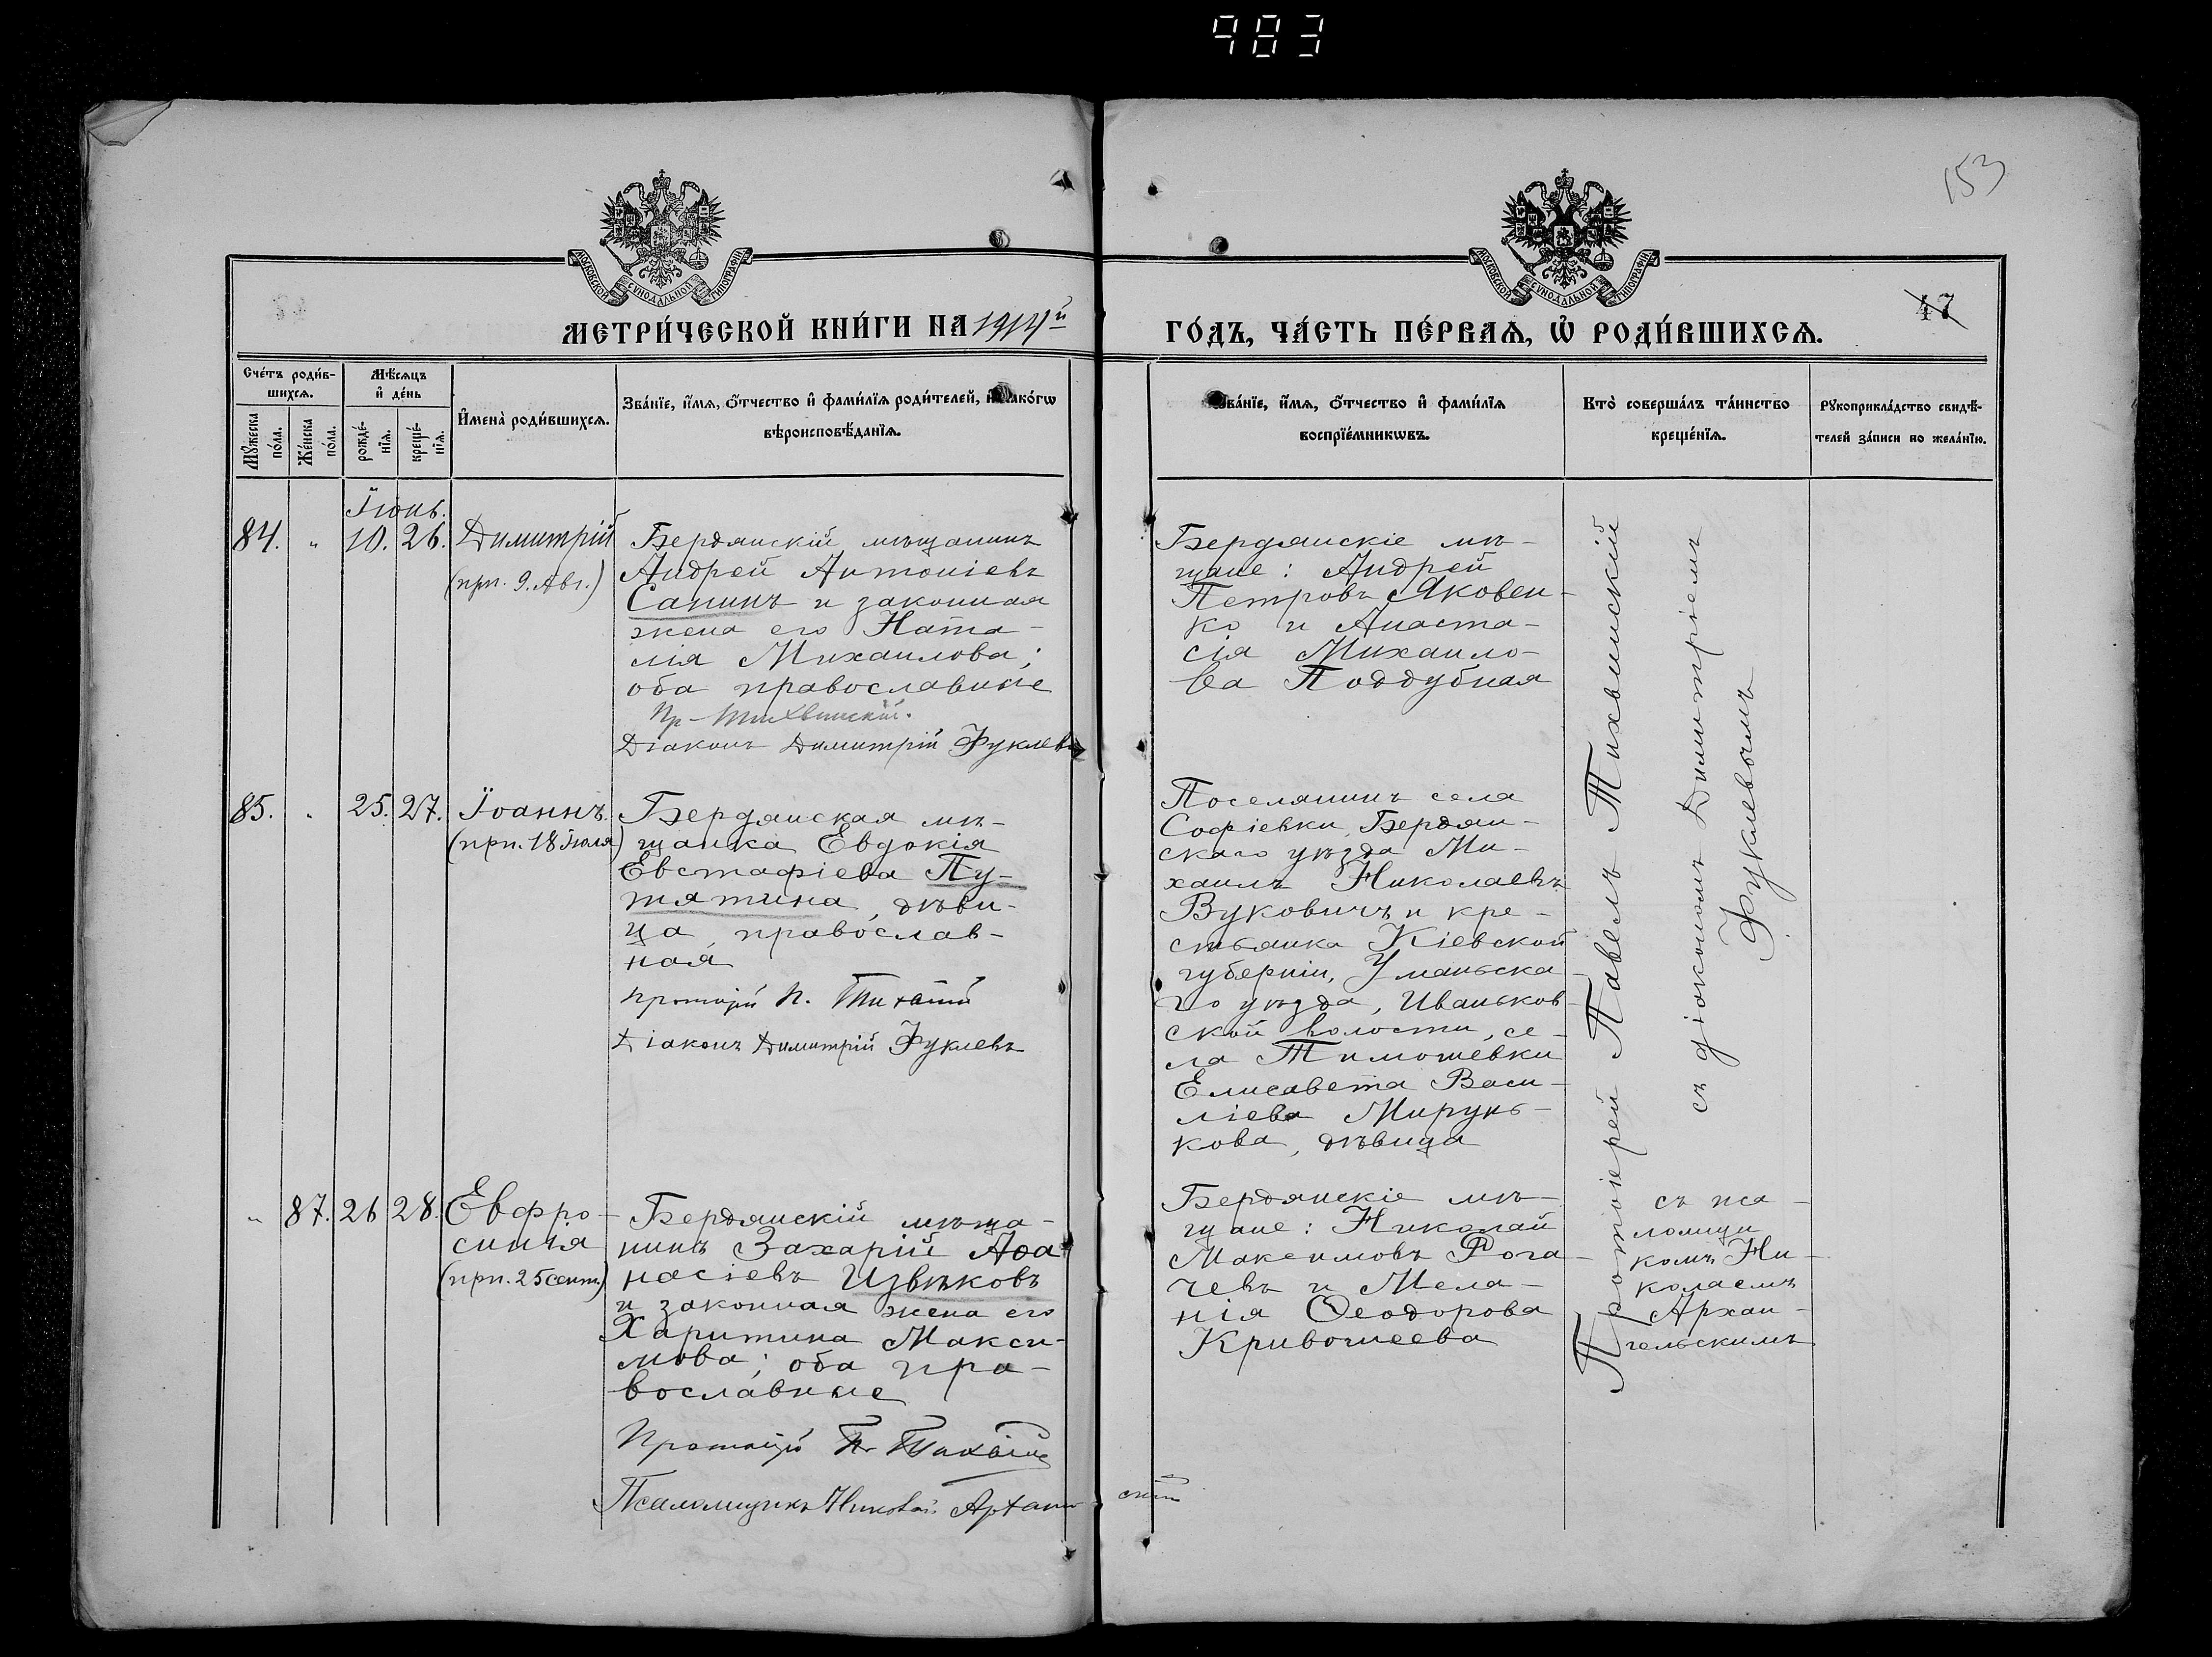 983
153
МОСКОВСКОЙ СѴНОДАЛЬНОЙ ТИПОГРАФІИ
МОСКОВСКОЙ СѴНОДАЛЬНОЙ ТИПОГРАФІИ
47
МЕТРИ́ЧЕСКОЙ КНИ́ГИ НА 1914й
ГО́ДЪ, ЧА́СТЬ ПЕ́РВАѦ, Ѽ РОДИ́ВШИХСѦ.
Сче́тъ роди́в-
шихсѧ.
Мꙋ́жеска
по́ла.
Же́нска
по́ла.
Мѣ́сѧцъ
и҆ де́нь
рожде́-
нїѧ.
креще́-
нїѧ.
И҆мена̀ роди́вшихсѧ.
Зва́нїе, и҆́мѧ, ѻ҆́тчество и҆ фами́лїѧ роди́телей, и҆ како́гѡ
вѣроисповѣ́данїѧ.
Зва́нїе, и҆́мѧ, ѻ҆́тчество и҆ фами́лїѧ
воспрїе́мникѡвъ.
Кто̀ соверша́лъ та́инство
креще́нїѧ.
Рꙋкоприкла́дство свидѣ́-
телей за́писи по жела́нїю.
Іюнь.
84. " 10. 26. Димитрій
(прп. 9. Авг.)
Бердянскій мѣщанинъ
Андрей Антоніевъ
Санинъ и законная
жена его Ната-
лія Михаилова;
оба православные
Пр- Тихвинскій.
Діаконъ Димитрій Фуклевъ
Бердянскіе мѣ-
щане: Андрей
Петровъ Яковен-
ко и Анаста-
сія Михаило-
ва Поддубная
85. " 25. 27. Іоаннъ
(прп. 18 Іюля)
Бердянская мѣ-
щанка Евдокія
Евстафіева Пу-
тятина, дѣви-
ца, православ-
ная
Протоіерей П.
Діаконъ Димитрій Фуклевъ
Поселянинъ села
Софіевки, Бердян-
скаго уѣзда Ми-
хаилъ Николаевъ
Вуковичъ и кре-
стьянка Кіевской
губерніи, Уманьска-
го уѣзда, Иваньков-
ской волости, се-
ла Тимошевки
Елисавета Васи-
ліева Мирунь-
кова, дѣвица
" 87. 26 28. Евфро-
синія
(прп. 25 сент.)
Бердянскій мѣща-
нинъ Захарій Аѳа-
насіевъ Извѣковъ
и законная жена его
Харитина Макси-
мова; оба пра-
вославные
Протоіерей П.
Псаломщикъ Николай Архангельскій
Бердянскіе мѣ-
щане: Николай
Максимовъ Рога-
чевъ и Мела-
нія Ѳеодорова
Кривошеева
Протоіерей Павелъ Тихвинскій
съ діакономъ Димитріемъ
Фуклевымъ
съ пса-
ломщи
комъ Ни-
колаемъ
Архан-
гельскимъ